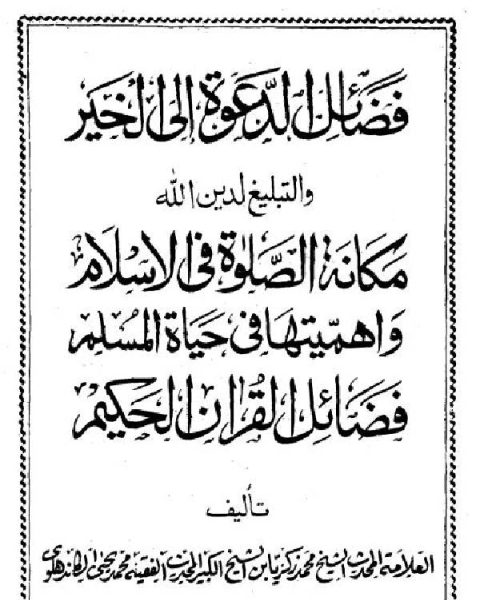 فضائل الدعوة إلى الخير
والتبليغ لدين الله
مكانة الصلوة في الاسلام
واهميتها في حياة المسلم
فضائل القران الحكيم
تأليف
العلامة المحدث الشيخ محمد زكريا بن الشيخ الكبير المحدث الفقيه محمد يحيى الكاندهلوي